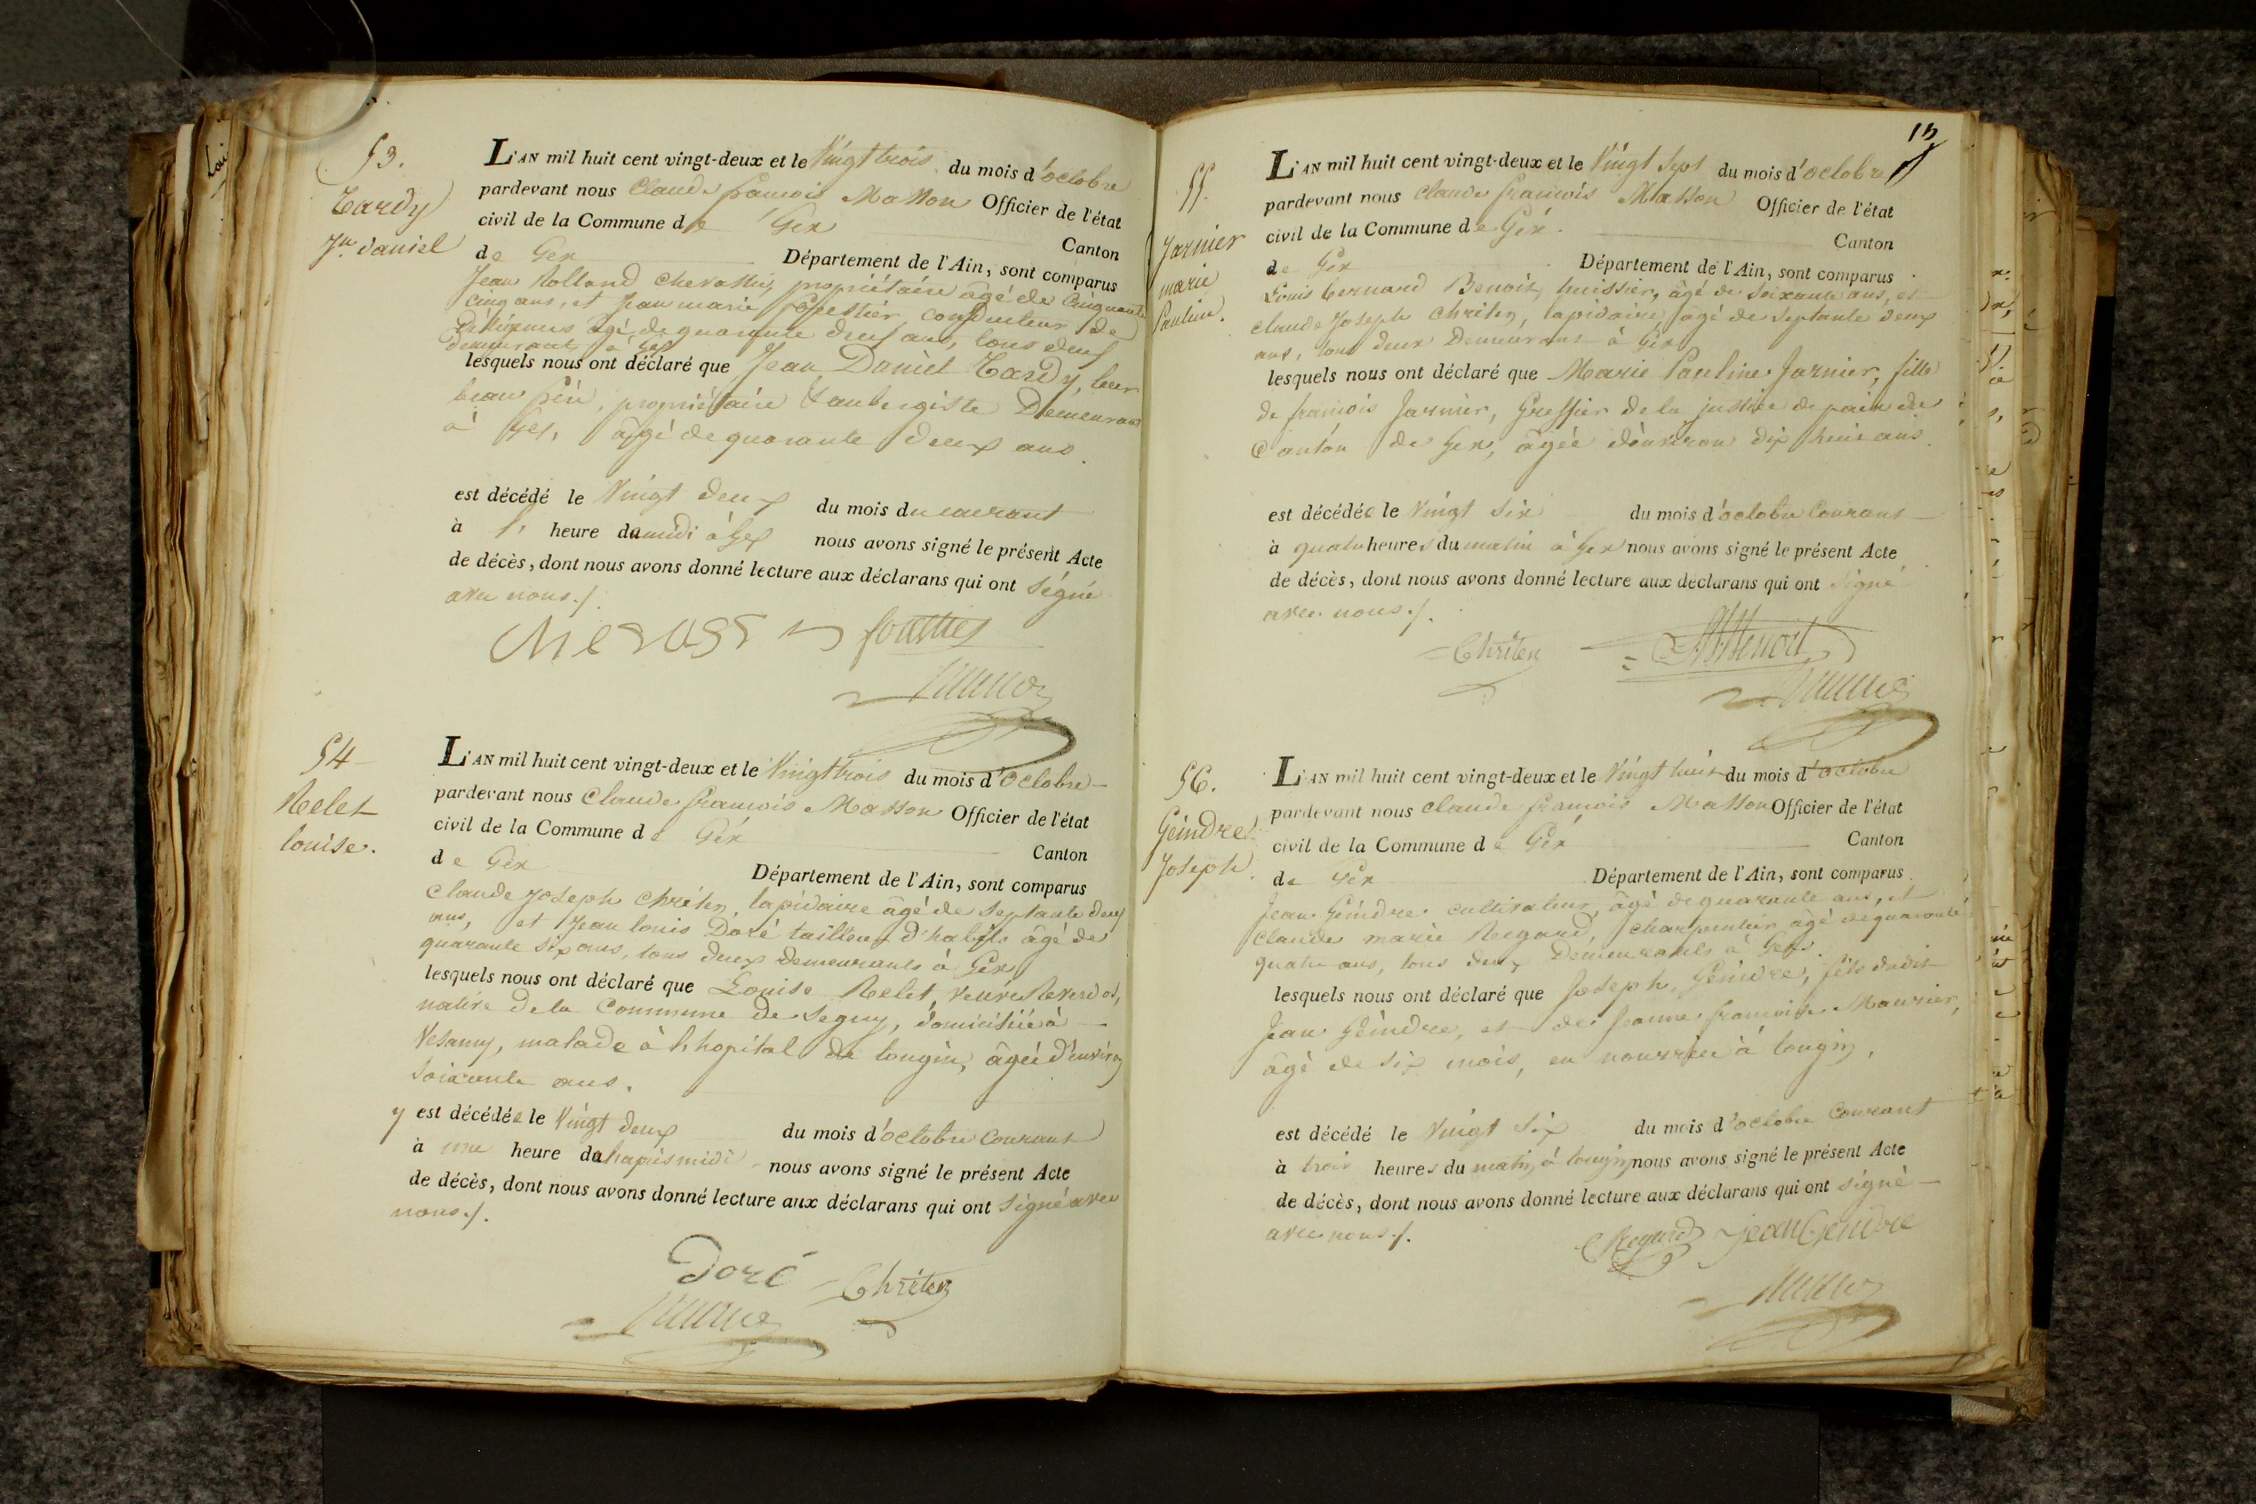 53.
Tardy
Jn. daniel
L'AN mil huit cent vingt-deux et le Vingt trois du mois d'octobre
pardevant nous Claude francois Masson Officier de l'état
civil de la Commune de Gex
Canton
de Gex Département de l'Ain, sont comparus
Jean Rolland Chevassu, propriétaire âgé de Cinquante
Cinq ans, et Jean marie conducteur de
âgé de quarante deux ans, tous deux
demeurant à Gex
lesquels nous ont déclaré que Jean Daniel Tardy, leur
beau frère, propriétaire & aubergiste Demeurant
à Gex, âgé de quarante deux ans.
est décédé le Vingt deux du mois du courant
à heure du midi à Gex nous avons signé le présent Acte
de décès, dont nous avons donné lecture aux déclarans qui ont signé
avec nous./.
54
Relet
louise.
L'AN mil huit cent vingt-deux et le Vingt trois du mois d'octobre
pardevant nous Claude francois Masson Officier de l'état
civil de la Commune de Gex
Canton
de Gex Département de l'Ain, sont comparus
Claude Joseph Chriten, lapidaire âgé de septante deux
ans, et Jean louis Doré tailleur d'habits âgé de
quarante six ans, tous deux demeurants à Gex
lesquels nous ont déclaré que Louise Relet, veuve
native de la Commune de Segny, domiciliée à
Vesancy, malade à l'hopital de tougin, âgée d'environ
soixante ans.
y est décédée le Vingt deux du mois d'octobre Courant
à une heure de l'après midi nous avons signé le présent Acte
de décès, dont nous avons donné lecture aux déclarans qui ont signé avec
nous./.
Doré Chriten
15
55.
Jarnier
marie
Pauline.
L'AN mil huit cent vingt-deux et le Vingt sept du mois d'octobre
pardevant nous Claude francois Masson Officier de l'état
civil de la Commune de Gex.
Canton
de Gex Département de l'Ain, sont comparus
Louis bernard Benoit, huissier, âgé de soixante ans, et
claude Joseph Chriten, lapidaire, âgé de septante deux
ans, tous deux Demeurans à Gex
lesquels nous ont déclaré que Marie Pauline Jarnier, fille
de francois Jarnier, Greffier de la justice de paix du
Canton de Gex, âgée d'environ dix huit ans.
est décédée le Vingt six du mois d'octobre Courant
à quatre heures du matin à Gex nous avons signé le présent Acte
de décès, dont nous avons donné lecture aux déclarans qui ont signé
avec nous./.
Chriten Benoit
56.
Geindre
Joseph.
L'AN mil huit cent vingt-deux et le Vingt huit du mois d'octobre
pardevant nous Claude francois Masson Officier de l'état
civil de la Commune de Gex
Canton
de Gex Département de l'Ain, sont comparus
Jean Geindre cultivateur, âgé de quarante ans, et
Claude marie Regard, charpentier âgé de quarante
quatre ans, tous deux Demeurants à Gex.
lesquels nous ont déclaré que Joseph Geindre, fils dudit
Jean Geindre, et de Jeanne francoise Maurier,
âgé de six mois, en nourrice à tougin,
est décédé le Vingt six du mois d'octobre Courant
à trois heures du matin, à tougin, nous avons signé le présent Acte
de décès, dont nous avons donné lecture aux déclarans qui ont signé
avec nous./.
Regard Jean Gendre